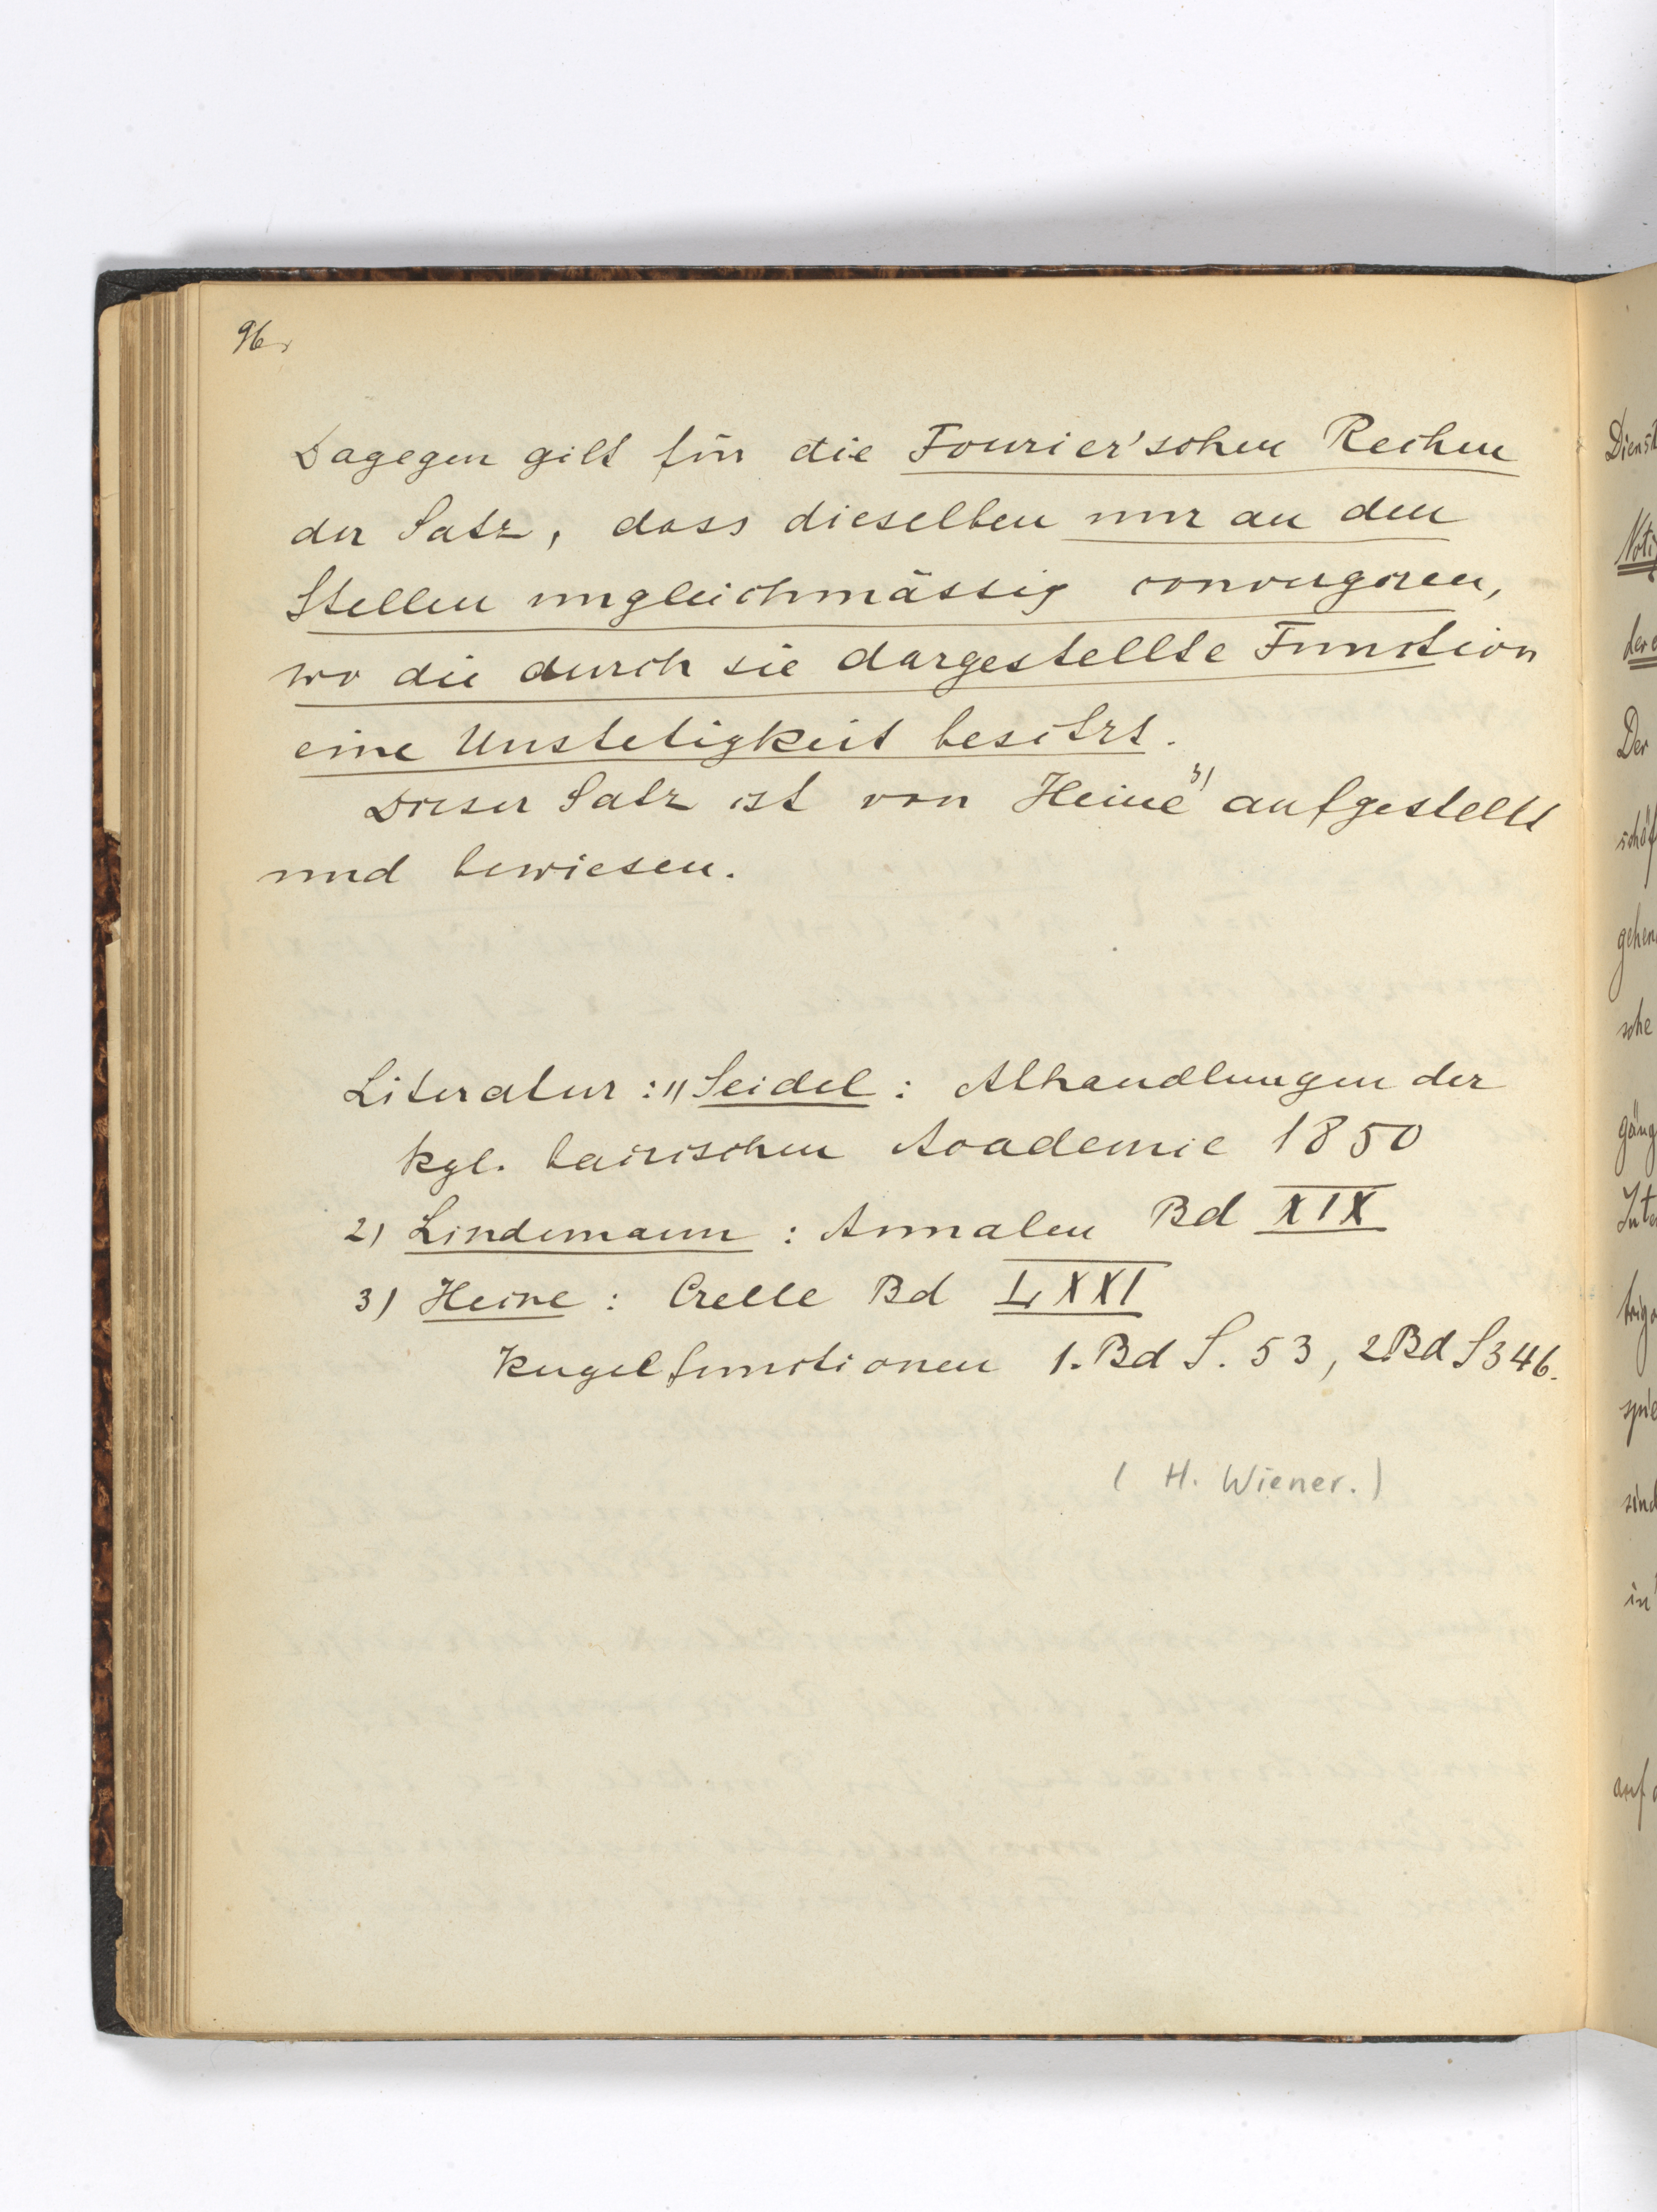 96.
Dagegen gilt für die Fourier'schen Reihen
der Satz, dass dieselben nur an den
Stellen ungleichmässig convergiren,
wo die durch sie dargestellte Function
eine Unstetigkeit besitzt.
Dieser Satz ist von Heine 3) aufgestellt
und bewiesen.
Literatur: 1) Seidel: Abhandlungen der
kgl. bairischen Academie 1850
2) Lindemann: Annalen Bd XIX
3) Heine: Crelle Bd LXXI
Kugelfunctionen 1. Bd S. 53, 2. Bd S 346.
(H. Wiener.)
Der
gehen
sche
in
auf